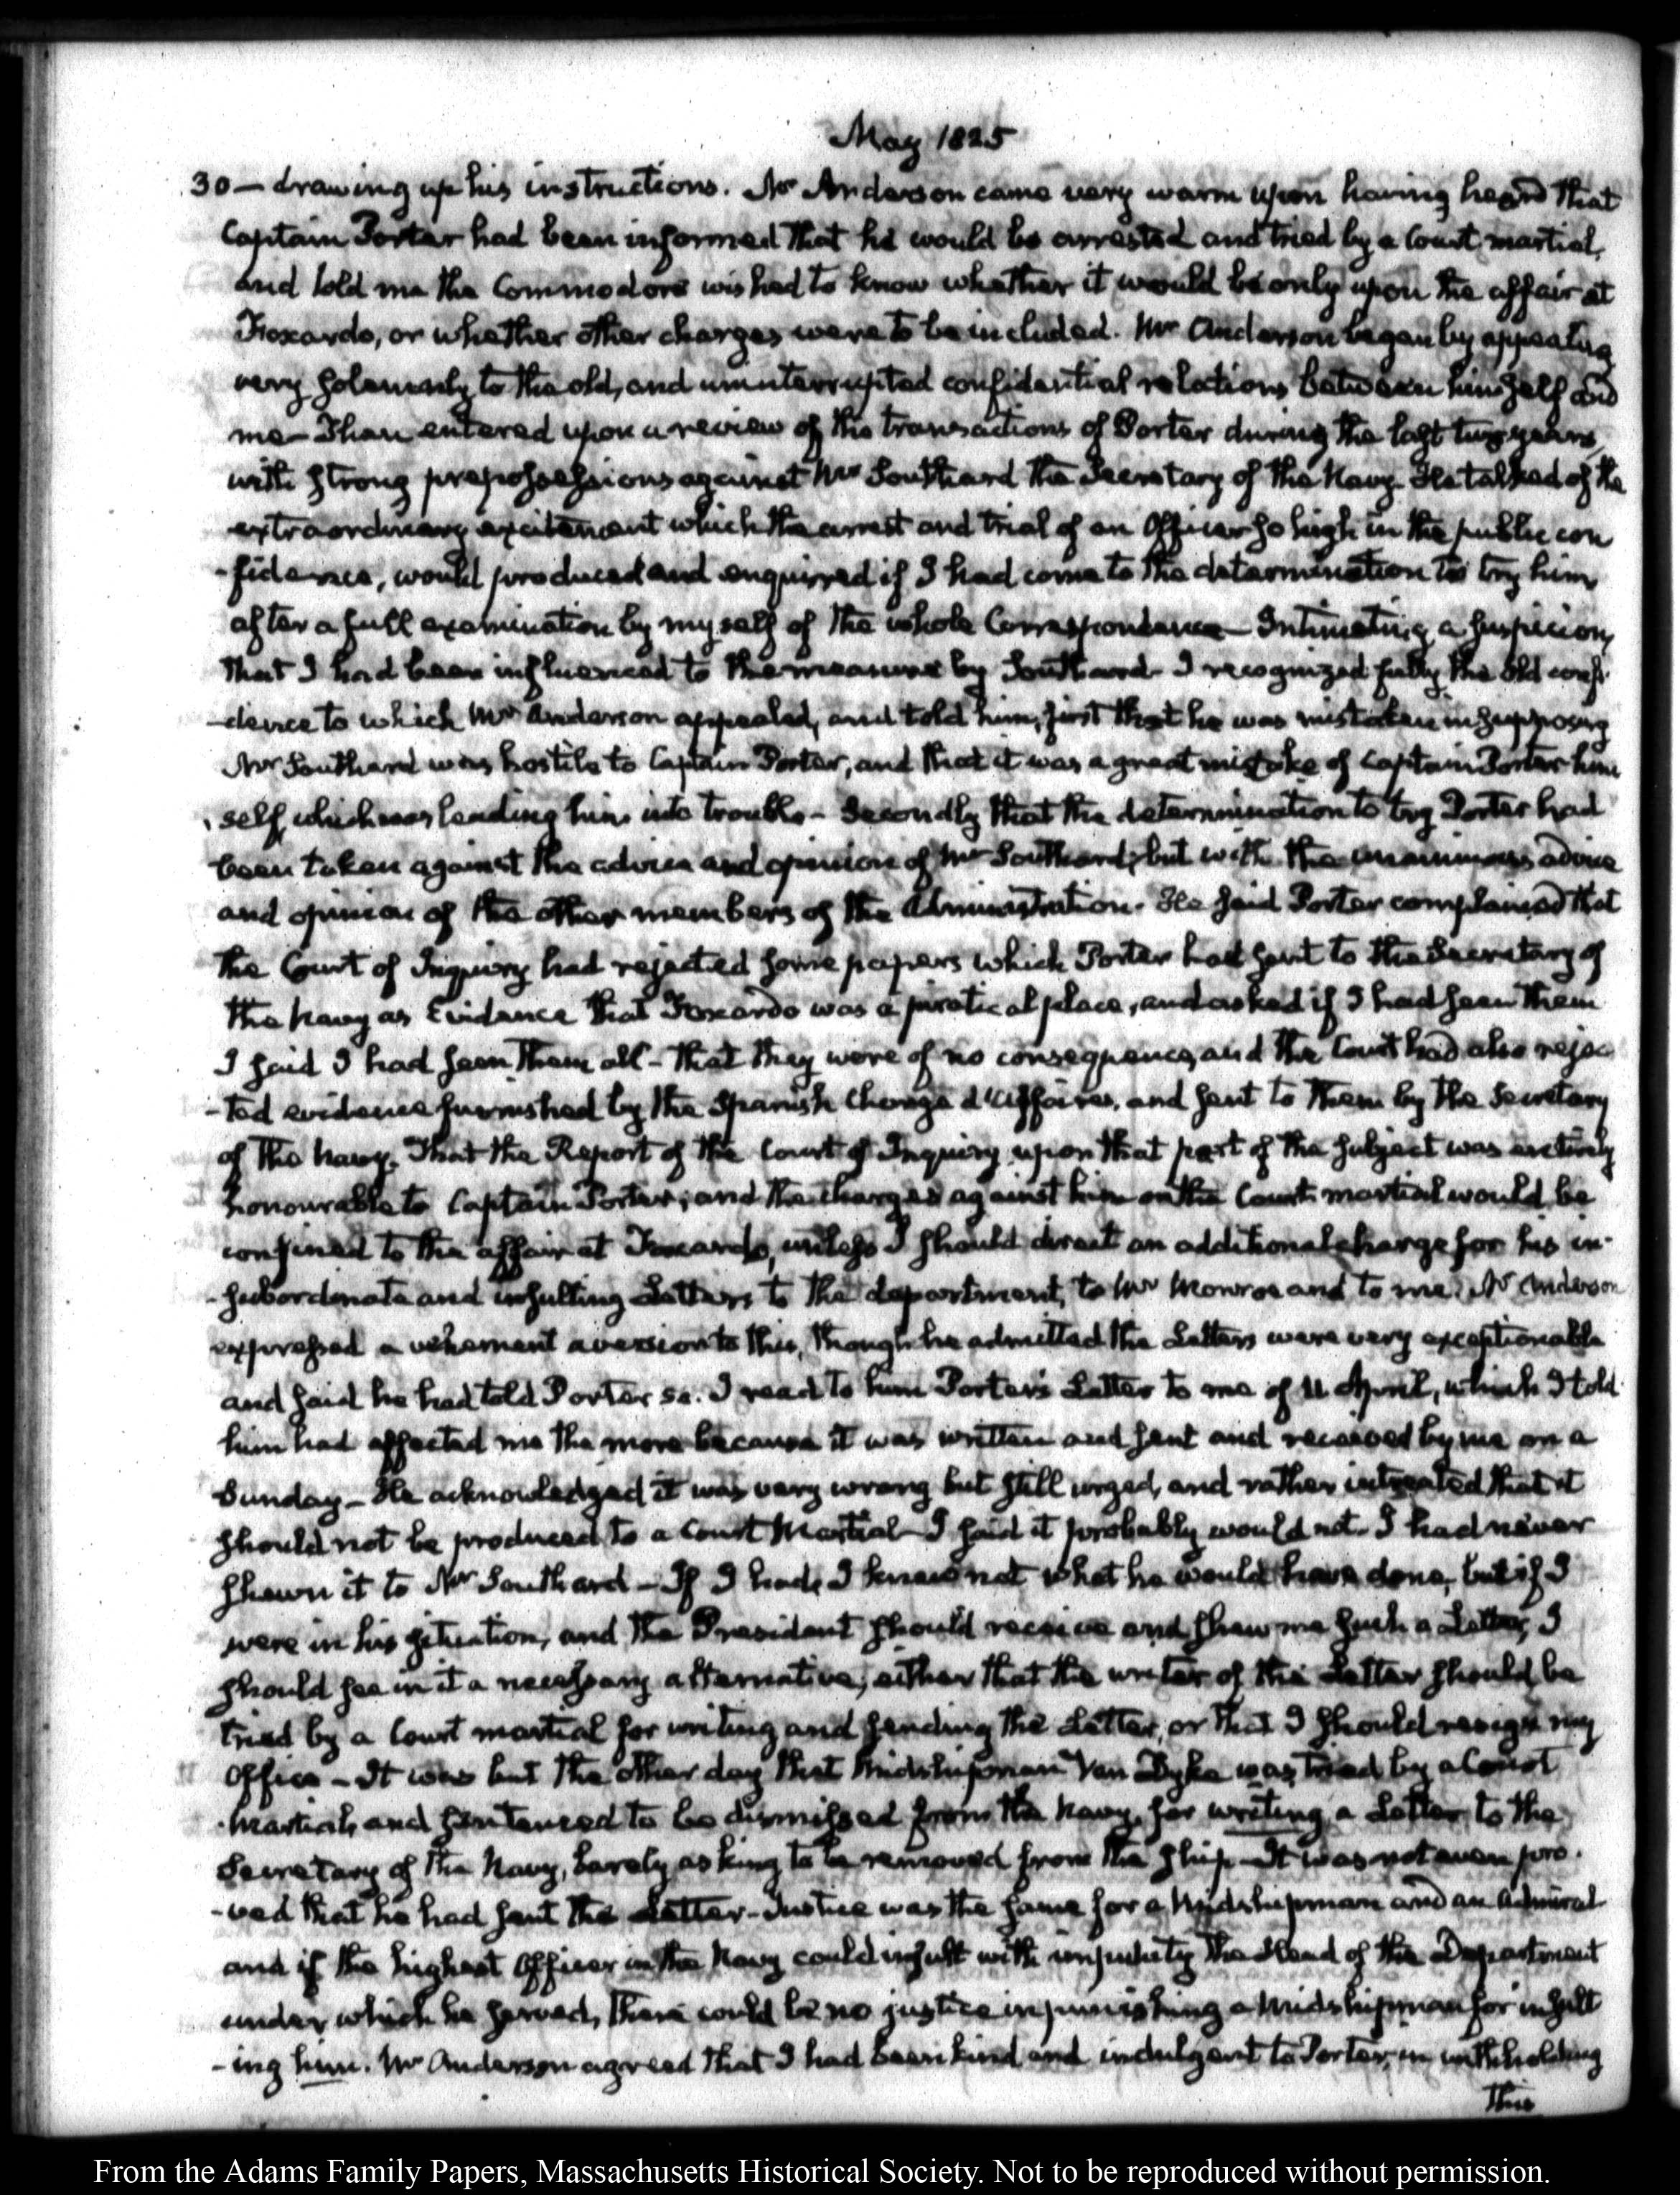 May 1825
30 — drawing up his instructions. Mr Anderson came very warm upon having heard that
Captain Porter had been informed that he would be arrested and tried by a Court martial,
and told me the Commodore wished to know whether it would be only upon the affair at
Foxardo, or whether other charges were to be included. Mr Anderson began by appealing
very solemnly to the old, and uninterrupted confidential relations between himself and
me — Then entered upon a review of the transactions of Porter during the last two years,
with strong prepossessions against Mr Southard the Secretary of the Navy. He talked of the
extraordinary excitement which the arrest and trial of an Officer so high in the public con
-fidence, would produce and enquired if I had come to the determination to try him,
after a full examination by myself of the whole Correspondence — Intimating a suspicion,
that I had been influenced to the measure by Southard — I recognized fully the old confi-
-dence to which Mr Anderson appealed, and told him, first that he was mistaken in supposing
Mr Southard was hostile to Captain Porter, and that it was a great mistake of Captain Porter him
self, which was leading him into trouble — Secondly that the determination to try Porter had
been taken against the advice and opinion of Mr Southard; but with the unanimous advice
and opinion of the other members of the Administration. He said Porter complained that
the Court of Inquiry had rejected some papers which Porter had sent to the Secretary of
the Navy as Evidence that Foxardo was a piratical place, and asked if I had seen them
I said I had seen them all — that they were of no consequence, and the Court had also rejec
-ted evidence furnished by the Spanish Chargé d'Affaires, and sent to them by the Secretary
of the Navy. That the Report of the Court of Inquiry upon that part of the subject was entirely
honourable to Captain Porter; and the charges against him on the Court martial would be
confined to the affair at Foxardo, unless I should direct an additional charge for his in-
-subordinate and insulting Letters to the department, to Mr Monroe and to me. Mr Anderson
expressed a vehement aversion to this, though he admitted the Letters were very exceptionable
and said he had told Porter so. I read to him Porter's Letter to me of 11 April, which I told
him had affected me the more because it was written and sent and received by me on a
Sunday — He acknowledged it was very wrong but still urged, and rather intreated that it
should not be produced to a Court Martial — I said it probably would not. I had never
shewn it to Mr Southard — If I had, I knew not what he would have done, but if I
were in his situation, and the President should receive and shew me such a Letter, I
should see in it a necessary alternative, either that the writer of the Letter should be
tried by a Court martial for writing and sending the Letter, or that I should resign my
Office — It was but the other day that Midshipman Van Dyke was tried by a Court
Martial, and sentenced to be dismissed from the Navy, for writing a Letter to the
Secretary of the Navy, barely asking to be removed from the Ship — It was not even pro-
-ved that he had sent the Letter — Justice was the same for a Midshipman and an Admiral
and if the highest Officer in the Navy could insult with impunity the Head of the Department
under which he served, there could be no justice in punishing a Midshipman for insult
-ing him. Mr Anderson agreed that I had been kind and indulgent to Porter, in withholding
This
From the Adams Family Papers, Massachusetts Historical Society. Not to be reproduced without permission.